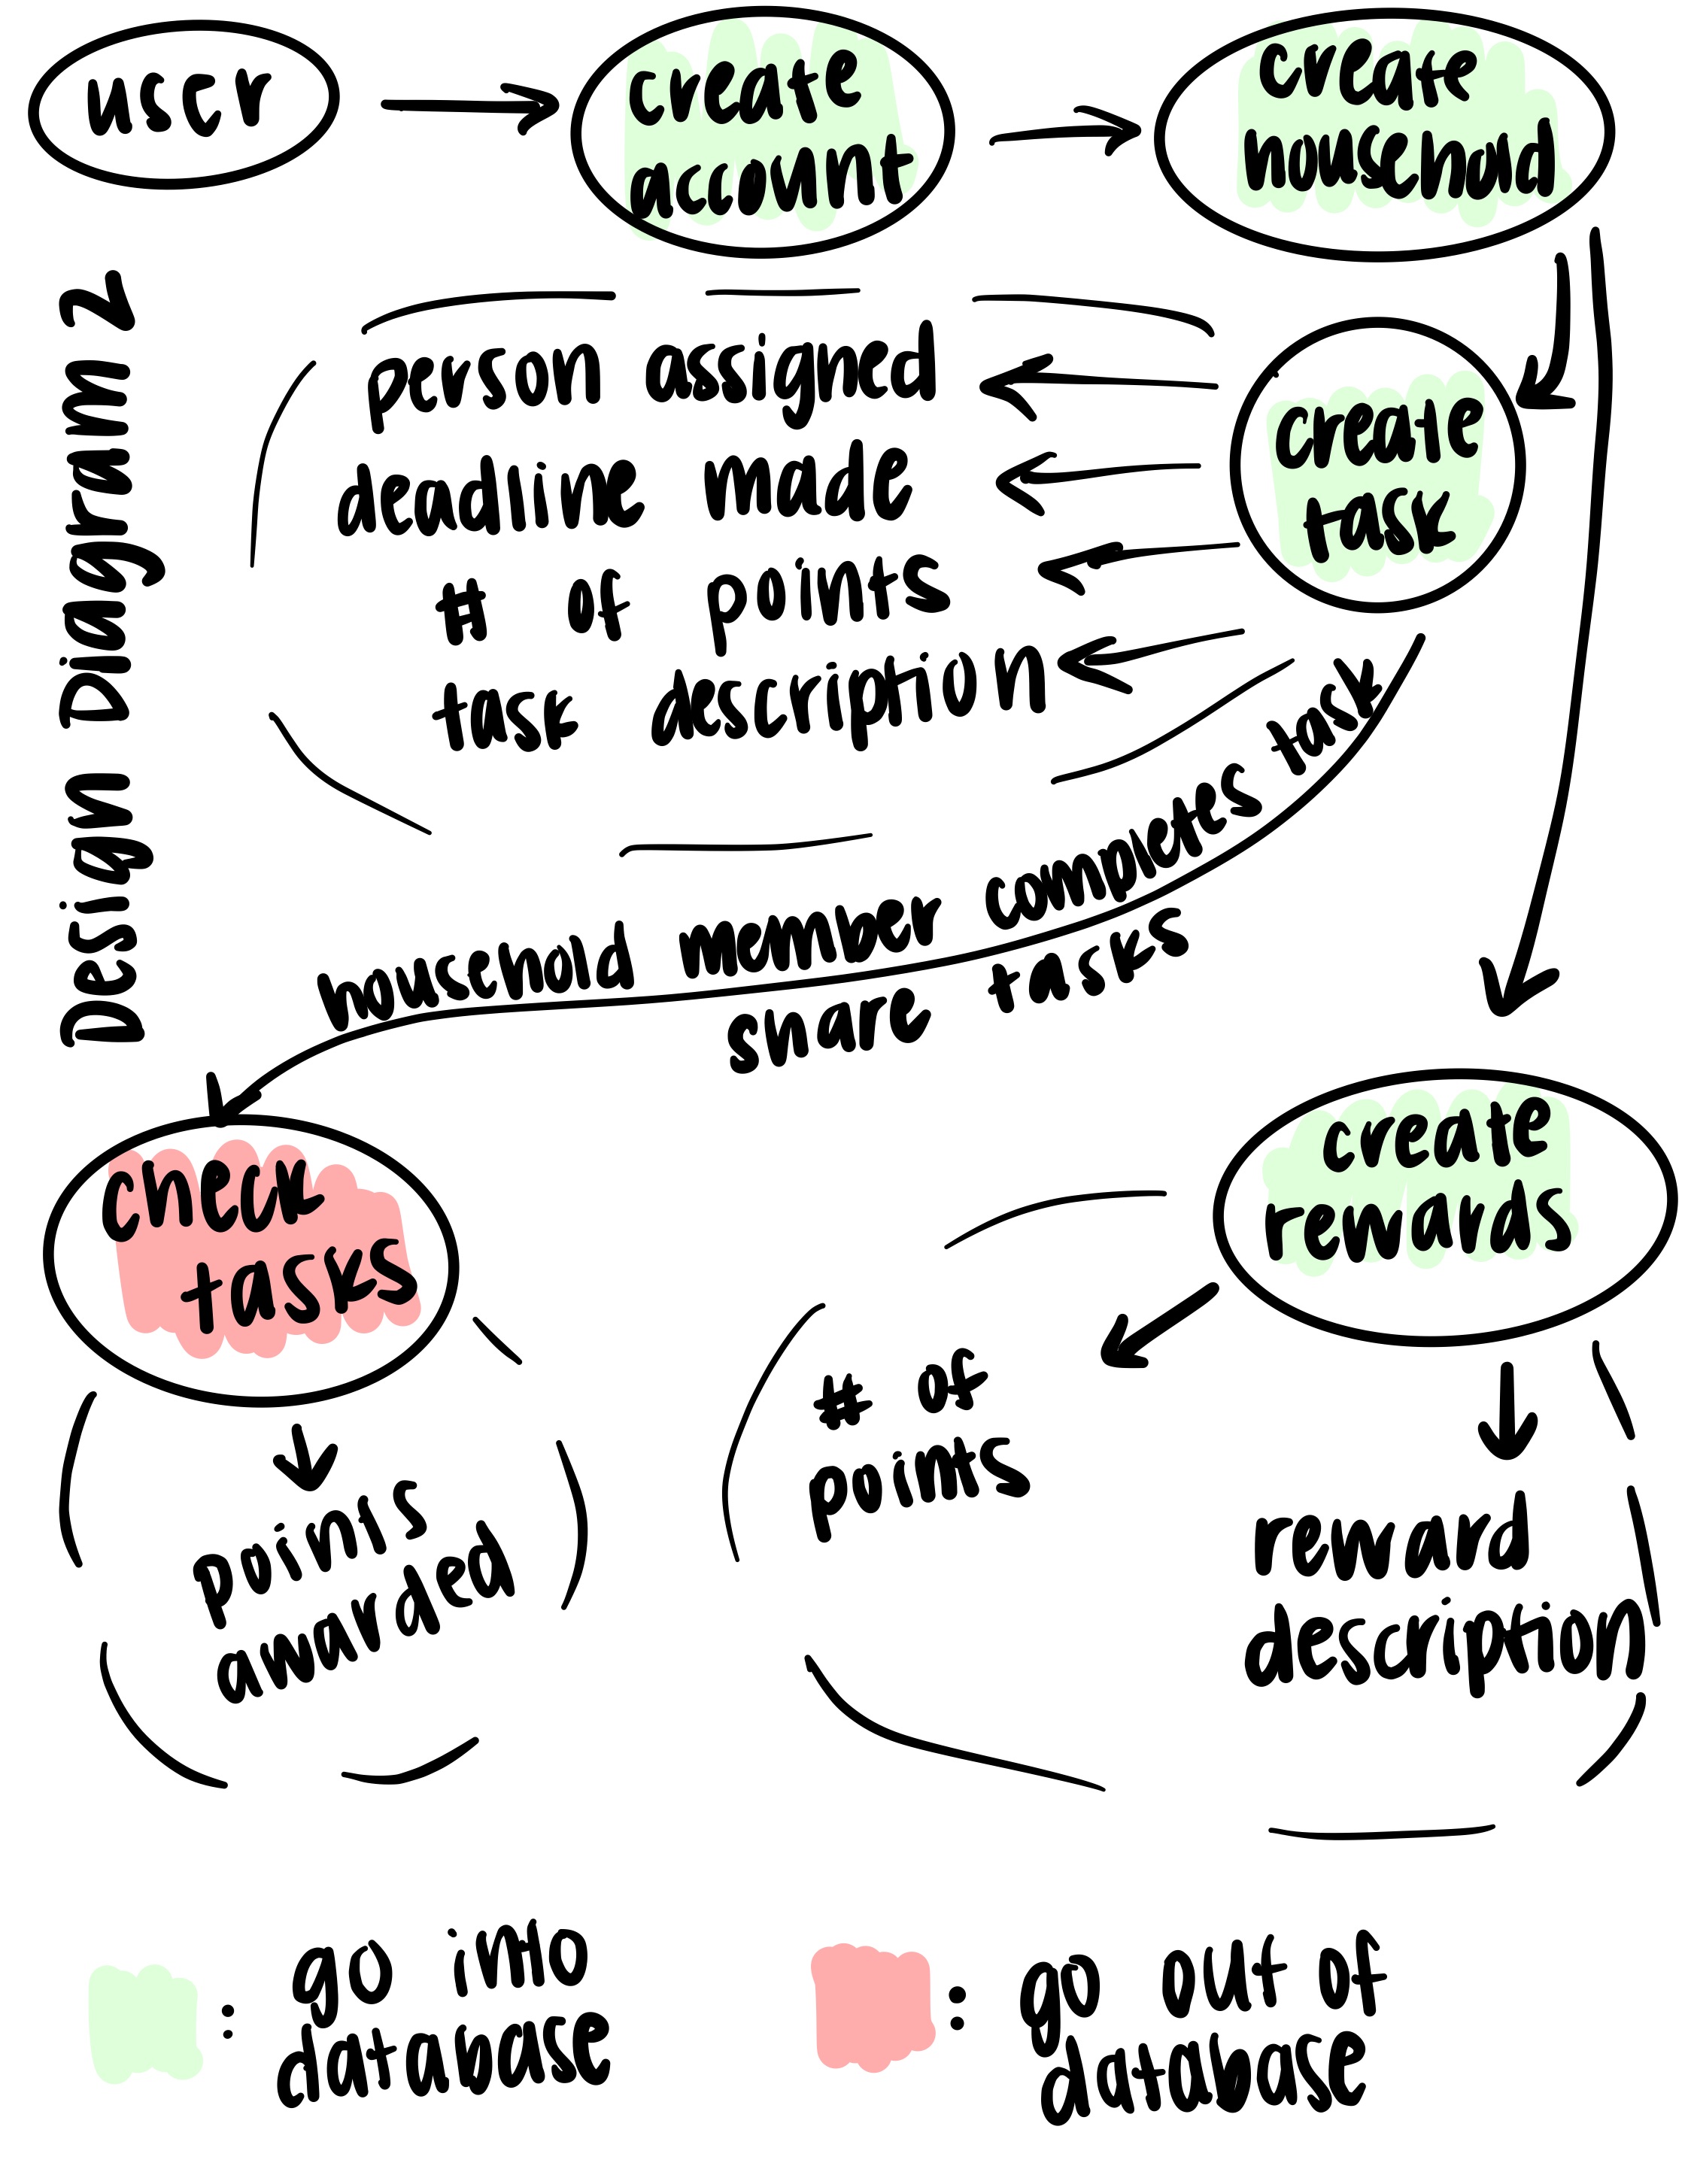 user
create
account
create
household
Design Diagram 2
person assigned
deadline made
# of points
task description
create
task
household member completes task
share tasks
check
tasks
points
awarded
create
rewards
# of
points
reward
description
: go into
database
: go out of
database